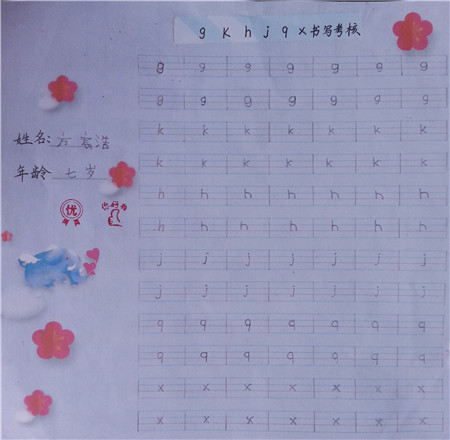 g k h j q x 书写考核
姓名: 方宸浩
年龄 七岁
优
你好棒
g g g g g g g
g g g g g g g
k k k k k k k
k k k k k k k
h h h h h h h
h h h h h h h
j j j j j j j
j j j j j j j
q q q q q q q
q q q q q q q
x x x x x x x
x x x x x x x